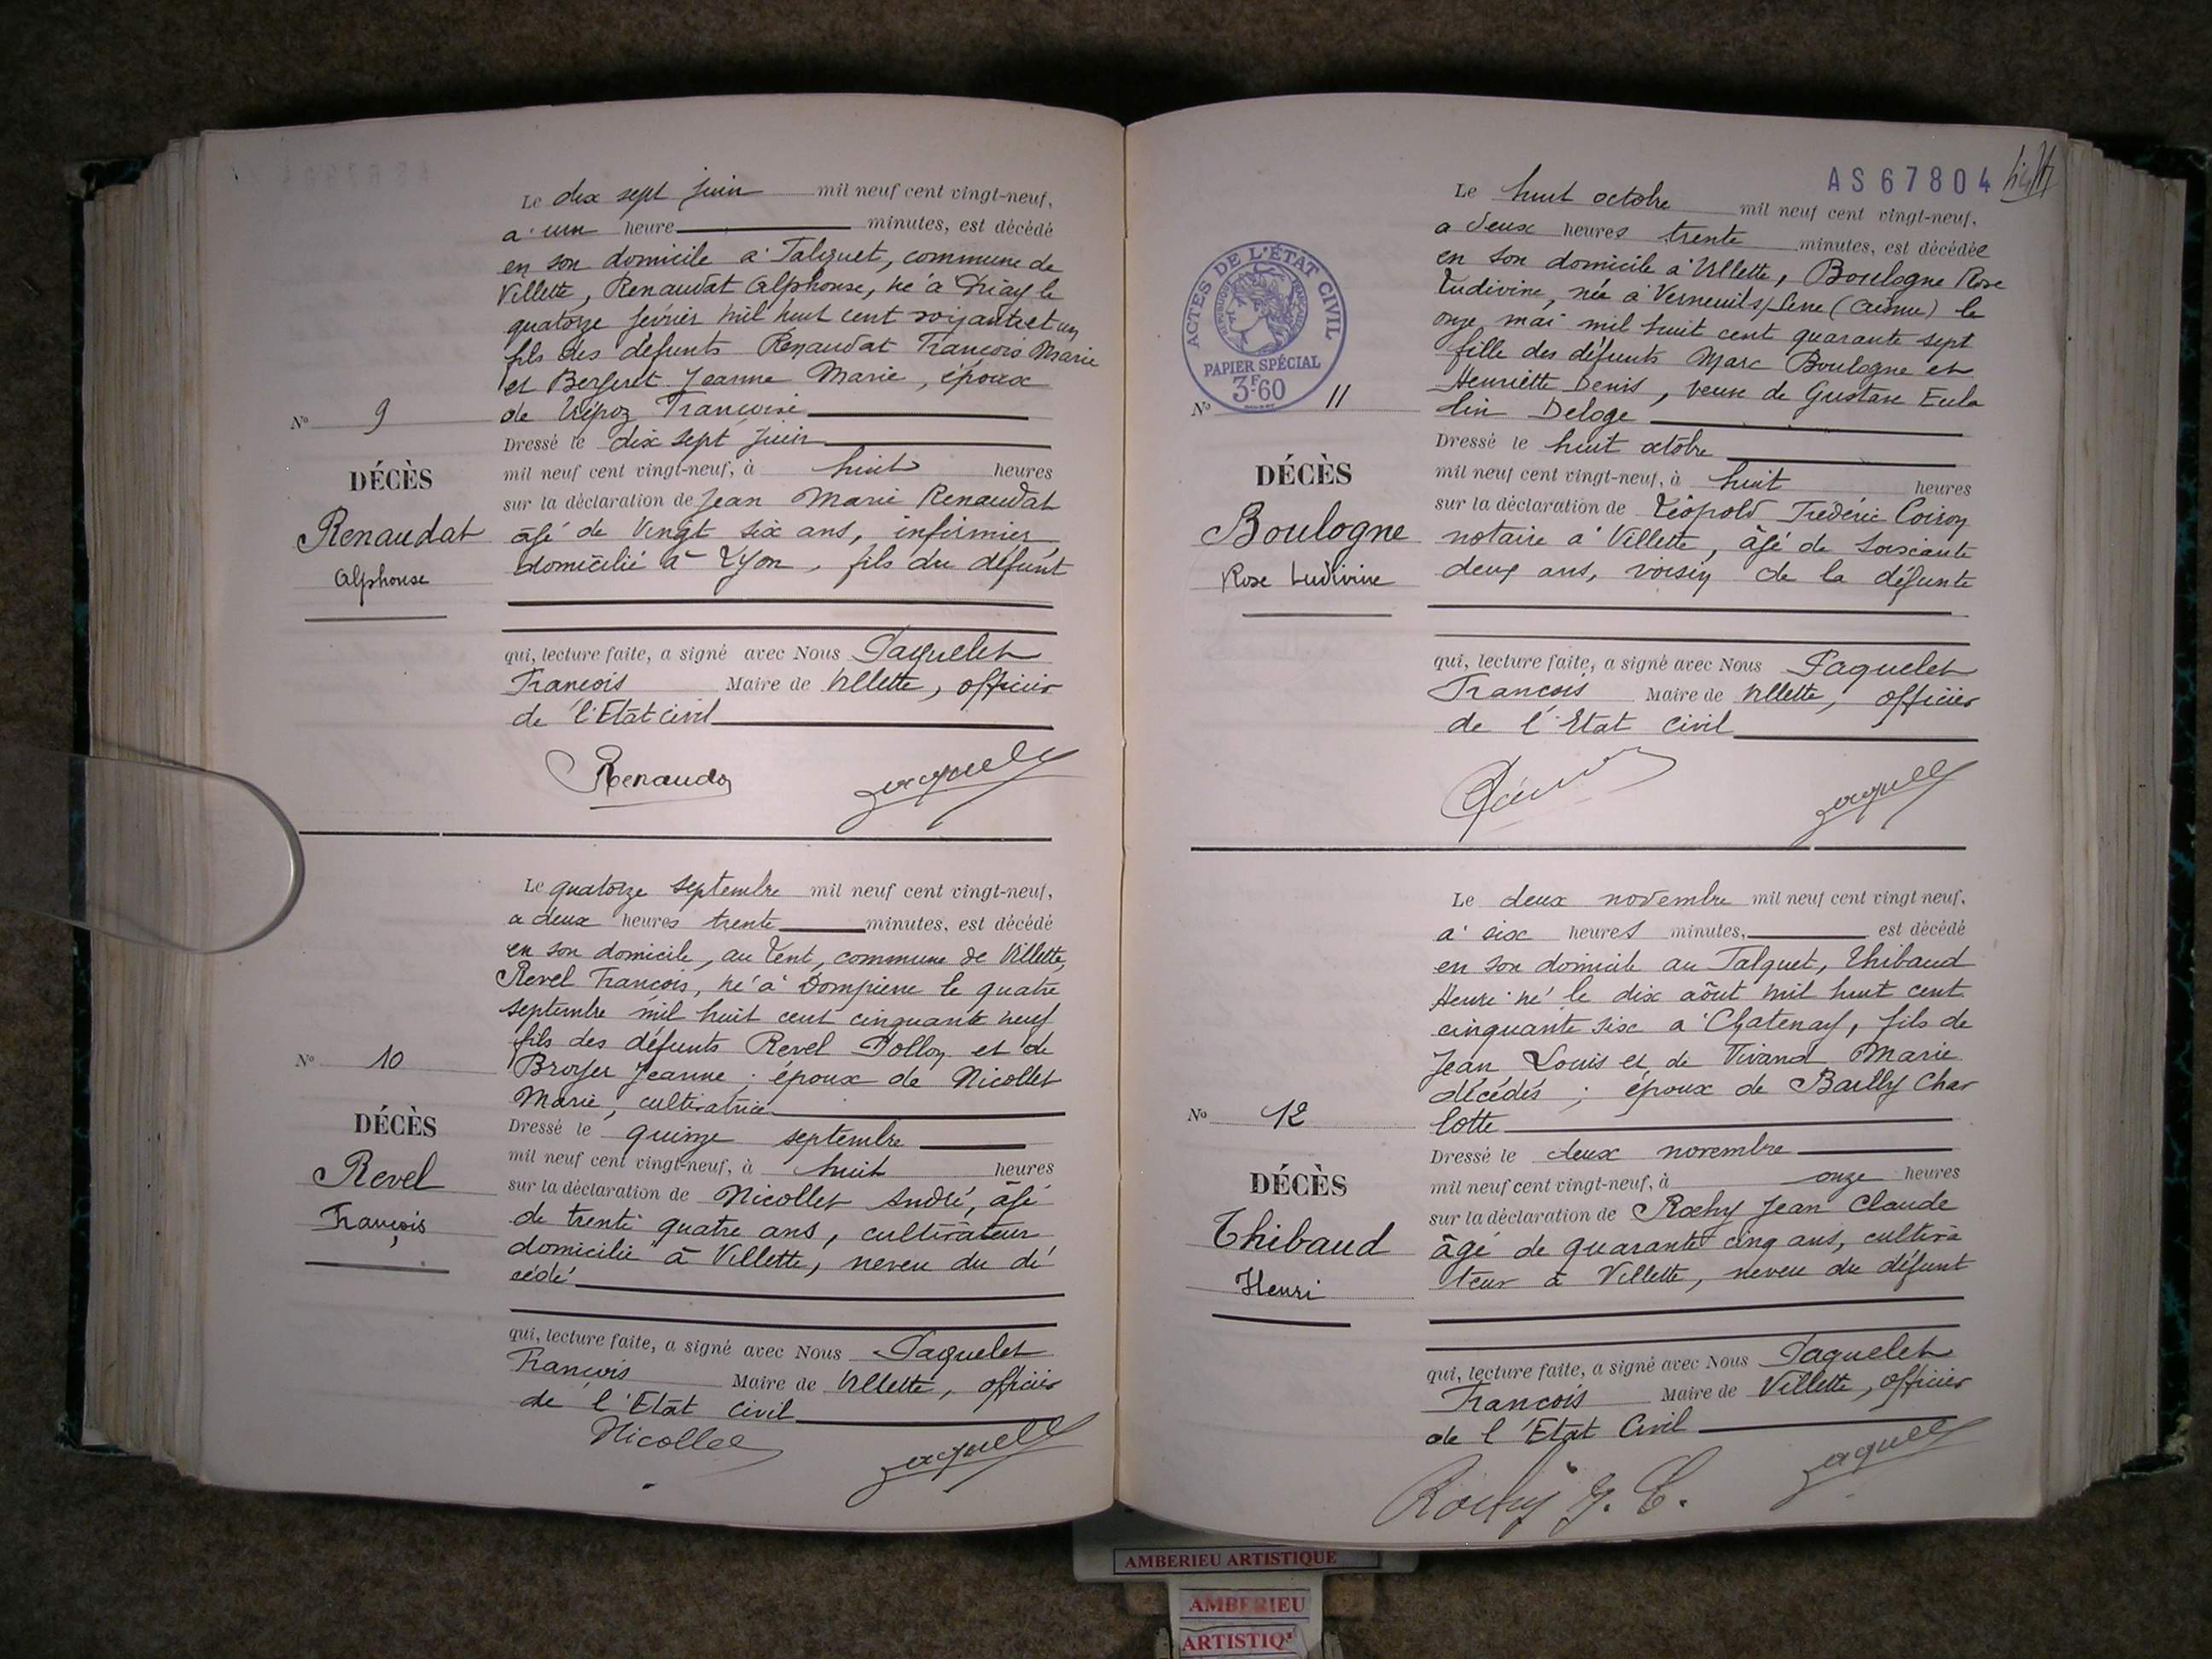 Le dix sept juin mil neuf cent vingt-neuf,
a un heure minutes, est décédé
en son domicile a Talguet, commune de
Villette, Renaudat Alphonse, né à Priay le
quatorze fevrier mil huit cent soixante et un
fils des défunts Renaudat François Marie
et Bergeret Jeanne Marie, époux
de Trépoz Françoise
No 9
Dressé le dix sept juin
mil neuf cent vingt-neuf, à huit heures
DÉCÈS
sur la déclaration de Jean Marie Renaudat
Renaudat
âgé de vingt six ans, infirmier
domicilié à Lyon, fils du défunt
Alphonse
qui, lecture faite, a signé avec Nous Paquelet
François Maire de Villette, officier
de l'Etat civil
Renaudat
Paquelet
Le quatorze septembre mil neuf cent vingt-neuf,
a deux heures trente minutes, est décédé
en son domicile, au Vent, commune de Villette,
Revel François, né à Dompierre le quatre
septembre mil huit cent cinquante neuf
fils des défunts Revel et de
No 10
Broyer Jeanne ; époux de Nicollet
Marie, cultivatrice
DÉCÈS
Dressé le quinze septembre
mil neuf cent vingt-neuf, à huit heures
Revel
sur la déclaration de Nicollet André, âgé
François
de trente quatre ans, cultivateur
domicilié à Villette, neveu du dé
cédé
qui, lecture faite, a signé avec Nous Paquelet
François Maire de Villette, officier
de l'Etat civil
Nicollet
Paquelet
AS67804
ACTES DE L'ÉTAT CIVIL
RÉPUBLIQUE FRANÇAISE
PAPIER SPÉCIAL
3F60
Le huit octobre mil neuf cent vingt-neuf,
a deux heures trente minutes, est décédée
en son domicile à Villette, Boulogne Rose
Ludivine, née à Verneuil s/ Serre (Aisne) le
onze mai mil huit cent quarante sept
fille des défunts Marc Boulogne et
Henriette Denis, veuve de Gustave Eula
No 11
lin Deloge
Dressé le huit octobre
DÉCÈS
mil neuf cent vingt-neuf, à huit heures
sur la déclaration de Léopold Frédéric
Boulogne
notaire à Villette, âgé de soixante
Rose Ludivine
deux ans, voisin de la défunte
qui, lecture faite, a signé avec Nous Paquelet
François Maire de Villette, officier
de l'Etat civil
Paquelet
Le deux novembre mil neuf cent vingt neuf,
a six heures minutes, est décédé
en son domicile au Talguet, Thibaud
Henri né le dix août mil huit cent
cinquante six a Chatenay, fils de
Jean Louis et de Vivand Marie
décédés ; époux de Bailly Char
No 12
lotte
Dressé le deux novembre
DÉCÈS
mil neuf cent vingt-neuf, à onze heures
sur la déclaration de Rochy Jean Claude
Thibaud
âgé de quarante cinq ans, cultiva
Henri
teur à Villette, neveu du défunt
qui, lecture faite, a signé avec Nous Paquelet
François Maire de Villette, officier
de l'Etat Civil
Rochy J. C.
Paquelet
AMBERIEU ARTISTIQUE
AMBERIEU
ARTISTIQ